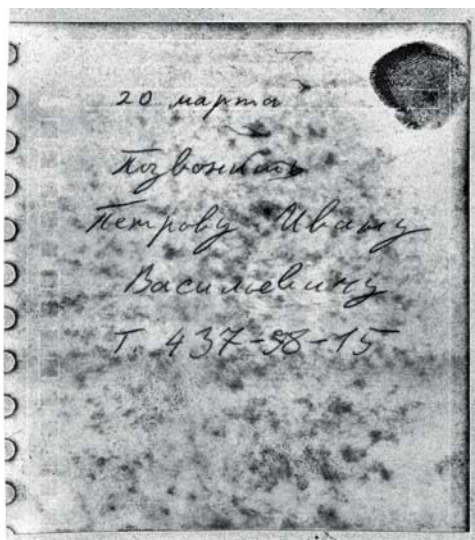 20 марта
Позвонить
Петрову Ивану
Васильевичу
Т. 437-58-15